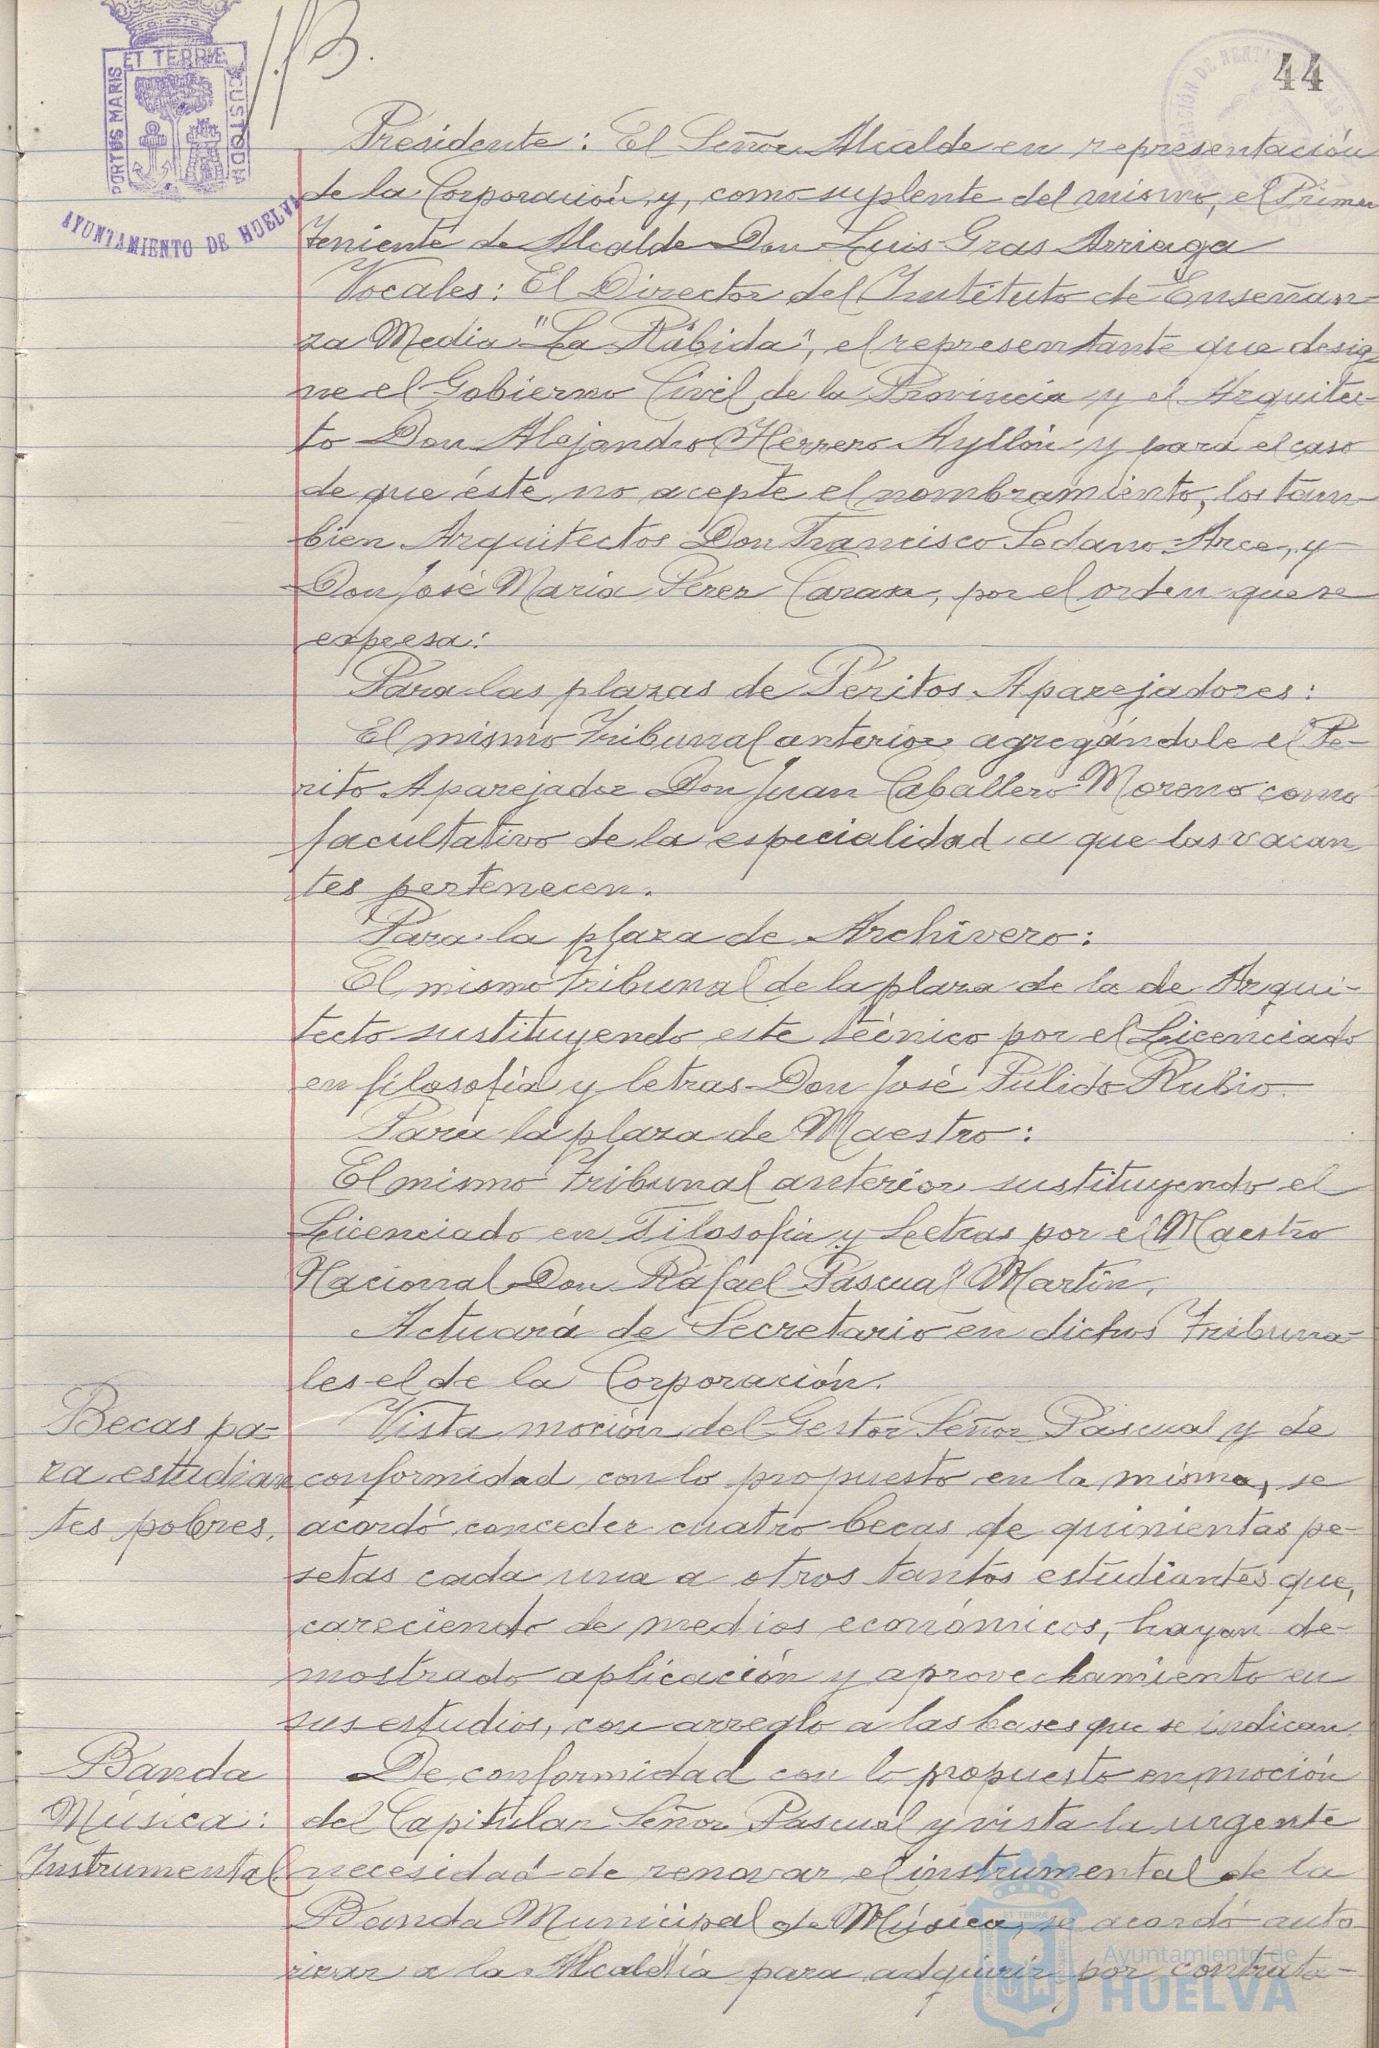 44
PORTUS MARIS ET TERRÆ CUSTODIA
AYUNTAMIENTO DE HUELVA
Presidente: El Señor Alcalde en representación
de la Corporación, y, como suplente del mismo, el Primer
Teniente de Alcalde Don Luis Gras Arriaga
Vocales: El Director del Instituto de Enseñan-
za Media "La Rábida", el representante que desig-
ne el Gobierno Civil de la Provincia y el Arquitec-
to Don Alejandro Herrero Ayllón y para el caso
de que éste no acepte el nombramiento, los tam-
bien Arquitectos Don Francisco Sedano Arce, y
Don José María Perez Carasa, por el orden que se
expresa:
Para las plazas de Peritos Aparejadores:
El mismo Tribunal anterior agregándole el Pe-
rito Aparejador Don Juan Caballero Moreno como
facultativo de la especialidad a que las vacan
tes pertenecen.
Para la plaza de Archivero:
El mismo Tribunal de la plaza de la de Arqui-
tecto sustituyendo este técnico por el Licenciado
en filosofía y letras Don José Pulido Rubio.
Para la plaza de Maestro:
El mismo Tribunal anterior sustituyendo el
Licenciado en Filosofía y Letras por el Maestro
Nacional Don Rafael Pascual Martín.
Actuará de Secretario en dichos Tribuna-
les el de la Corporación.
Becas pa-
ra estudian
tes pobres.
Vista moción del Gestor Señor Pascual y de
conformidad con lo propuesto en la misma, se
acordó conceder cuatro becas de quinientas pe-
setas cada una a otros tantos estudiantes que,
careciendo de medios económicos, hayan de-
mostrado aplicación y aprovechamiento en
sus estudios, con arreglo a las bases que se indican.
Banda
Música:
Instrumental
De conformidad con lo propuesto en moción
del Capitular Señor Pascual y vista la urgente
necesidad de renovar el instrumental de la
Banda Municipal de Música, se acordó auto
rizar a la Alcaldía para adquirir por contrata-
Ayuntamiento de
HUELVA